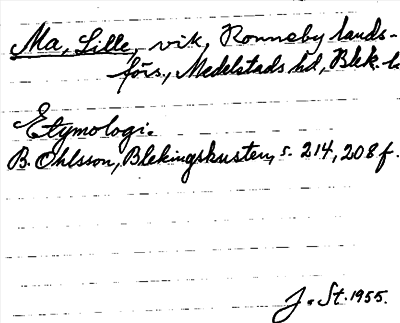 Ma, Lille, vik, Ronneby lands-
förs., Medelstads hd, Blek. l
Etymologi.
B. Ohlsson, Blekingskusten, s. 214, 208 f.
J. St. 1955.